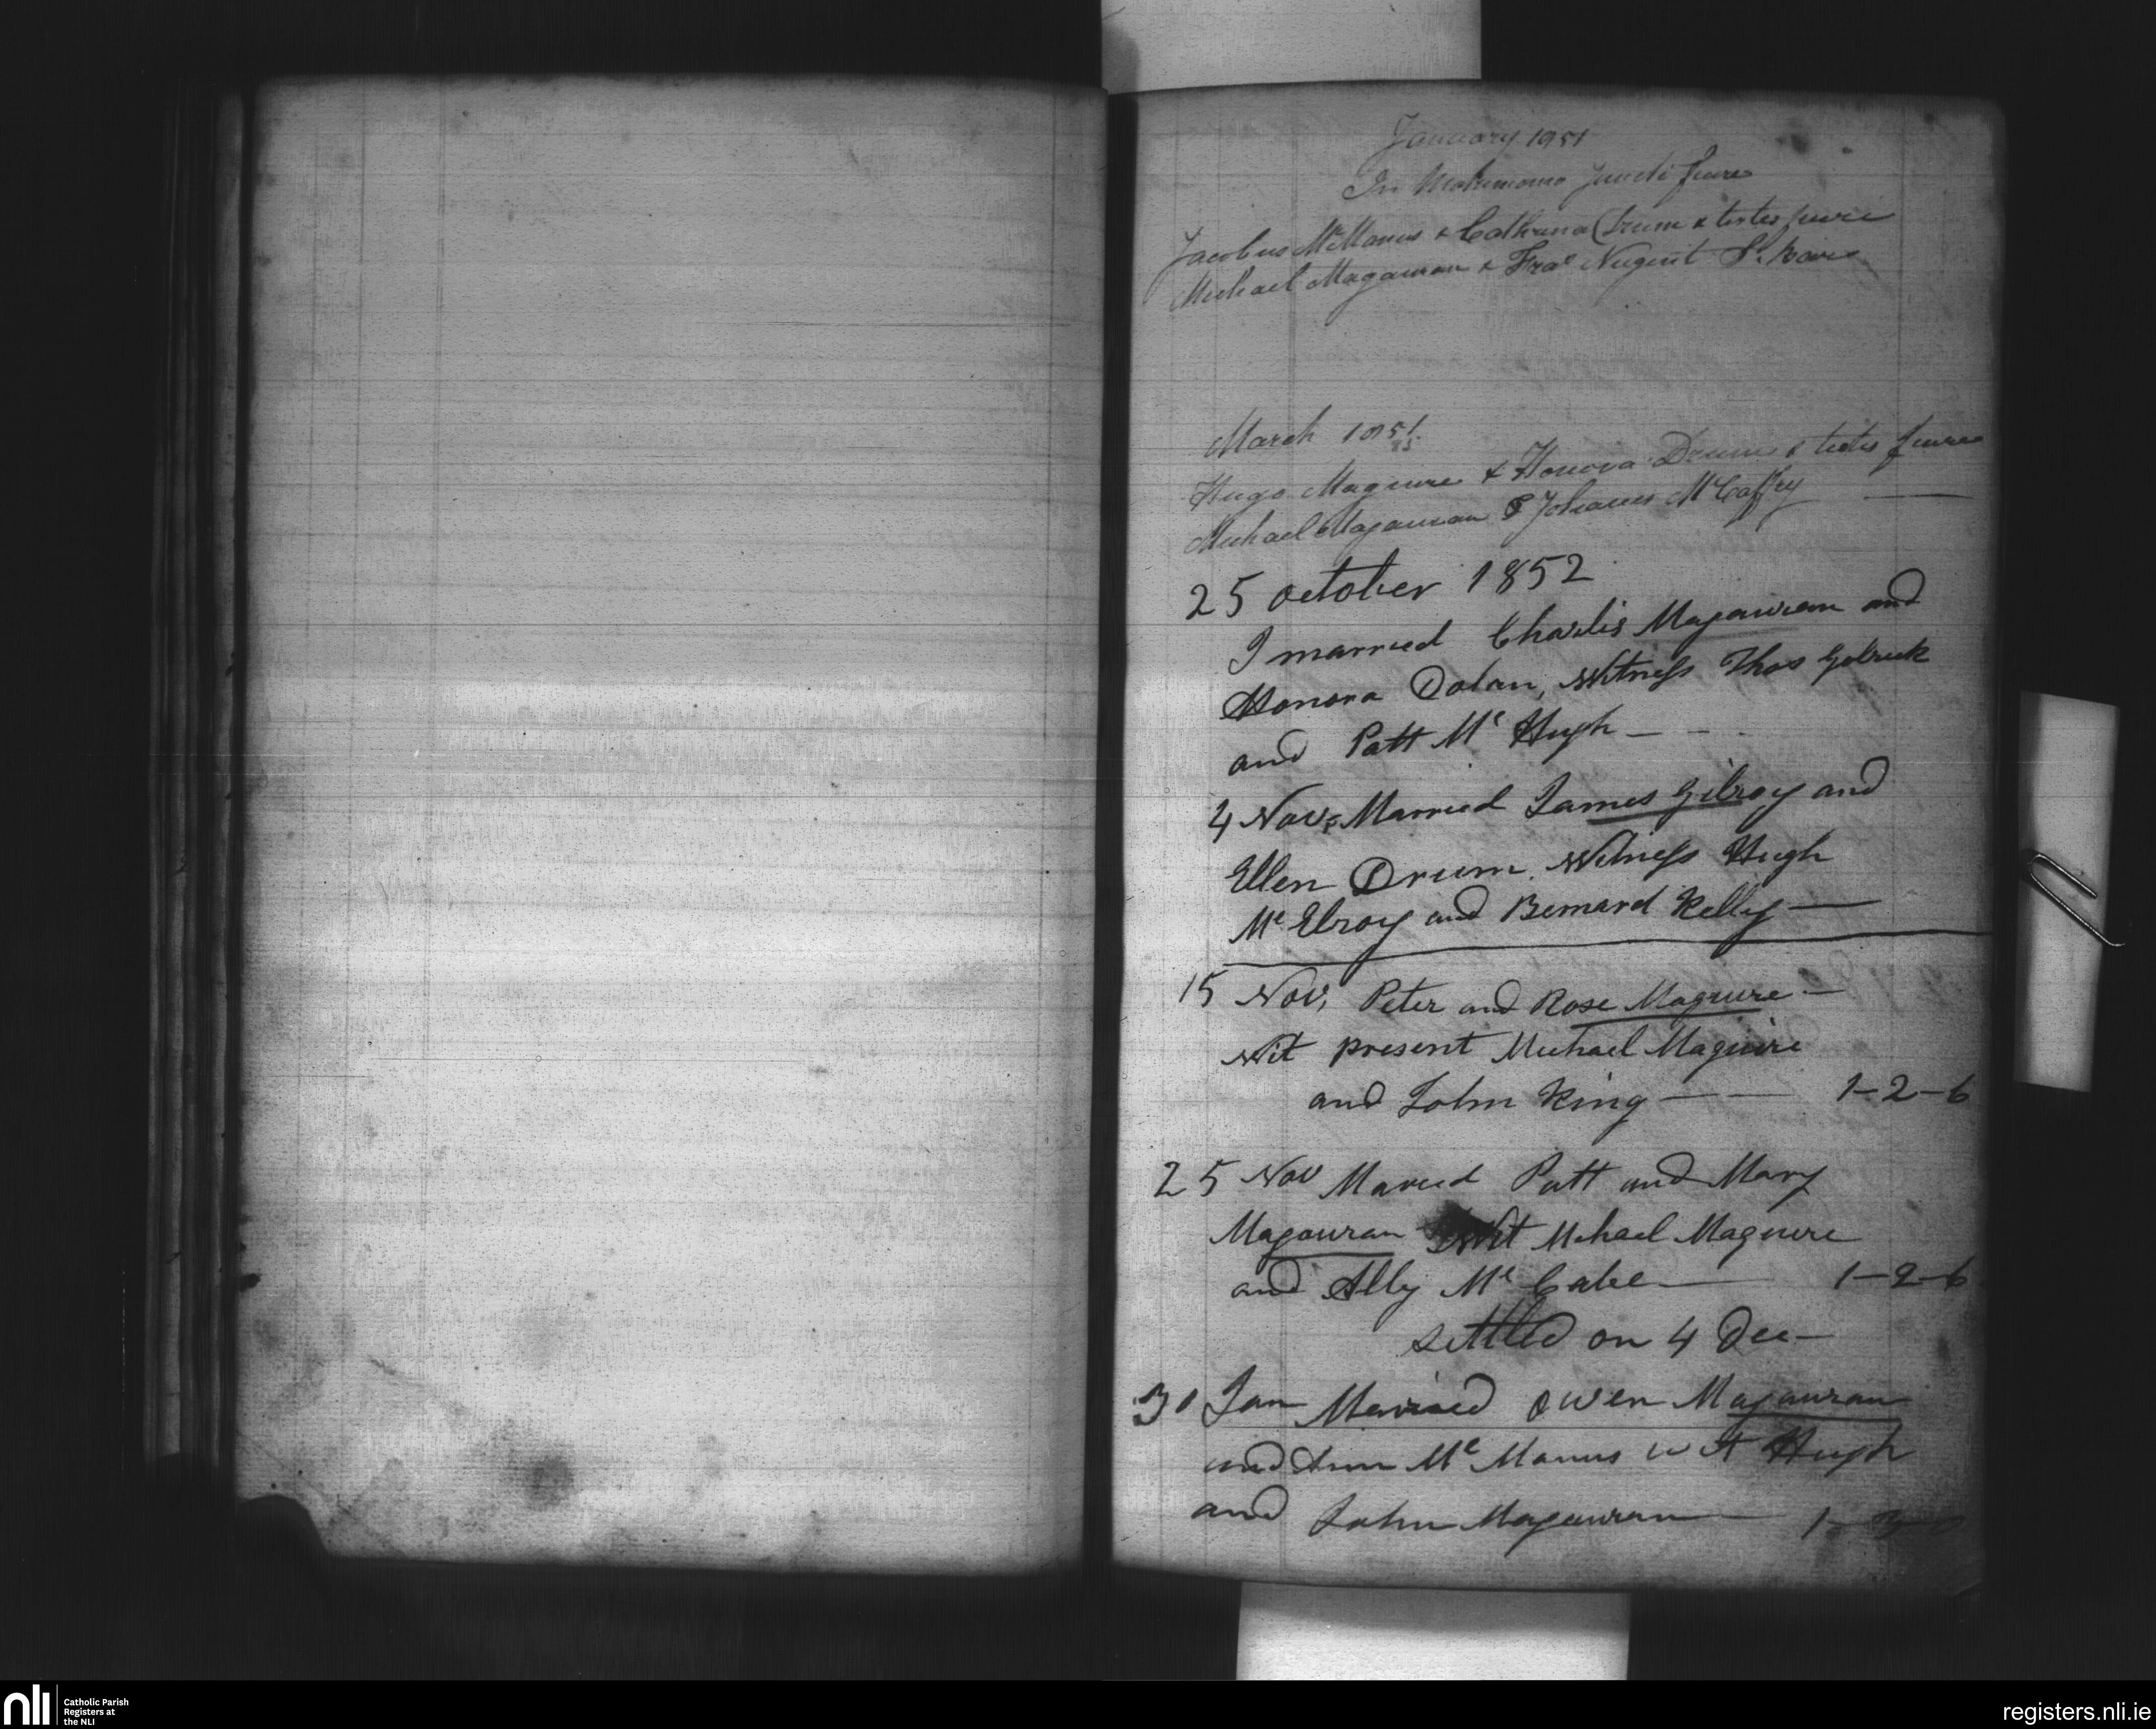 January 1951
In Matrimonio Juncti fuere
Jacobus McManus & Catherina Drum & testes fuere
Michael Magauran & Frae Nugent
March 1851
Hugo Maguire & Honora Drum & testes fuere
Michael Magauran & Johanes McCaffry
25 october 1852
I married Charles Magauran and
Honora Dolan, Witness Thos Golrick
and Patt Mc Hugh
4 Nov, Married James Gilroy and
Ellen Drum. Witness Hugh
Mc Elroy and Bernard Kelly
15 Nov, Peter and Rose Maguire
Wit present Michael Maguire
and John King 1-2-6
25 Nov Maried Patt and Mary
Magauran Wit Mihael Maguire
and Ally Mc Cabe 1-2-6
settled on 4 Dec
Jan Married owen Magauran
and Ann Mc Manus wit Hugh
and John Magauran
nli
Catholic Parish
Registers at
the NLI
registers.nli.ie